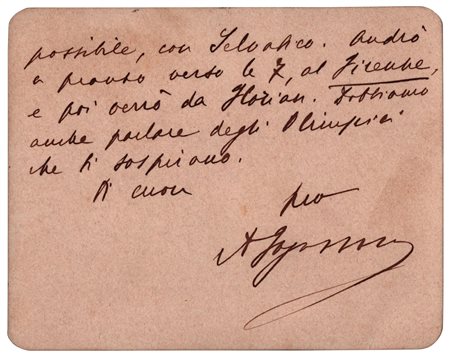 possibile, con Selvatico. Andrò
a pranzo verso le 7, al Firenze,
e poi verrò da Florian. Dobbiamo
anche parlare degli Olimpici
che ti sospirano.
Di cuore tuo